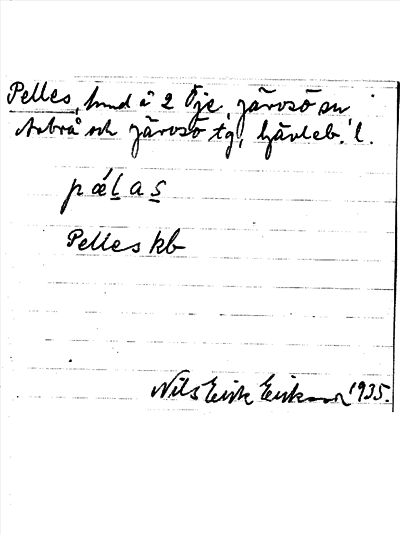 Pelles, hmd å 2 Öje, Järvsö sn
Arbrå och Järvsö tg, Hälsingl.
pǽlas
Pelles kb
Nils Erik Eriksson 1935.